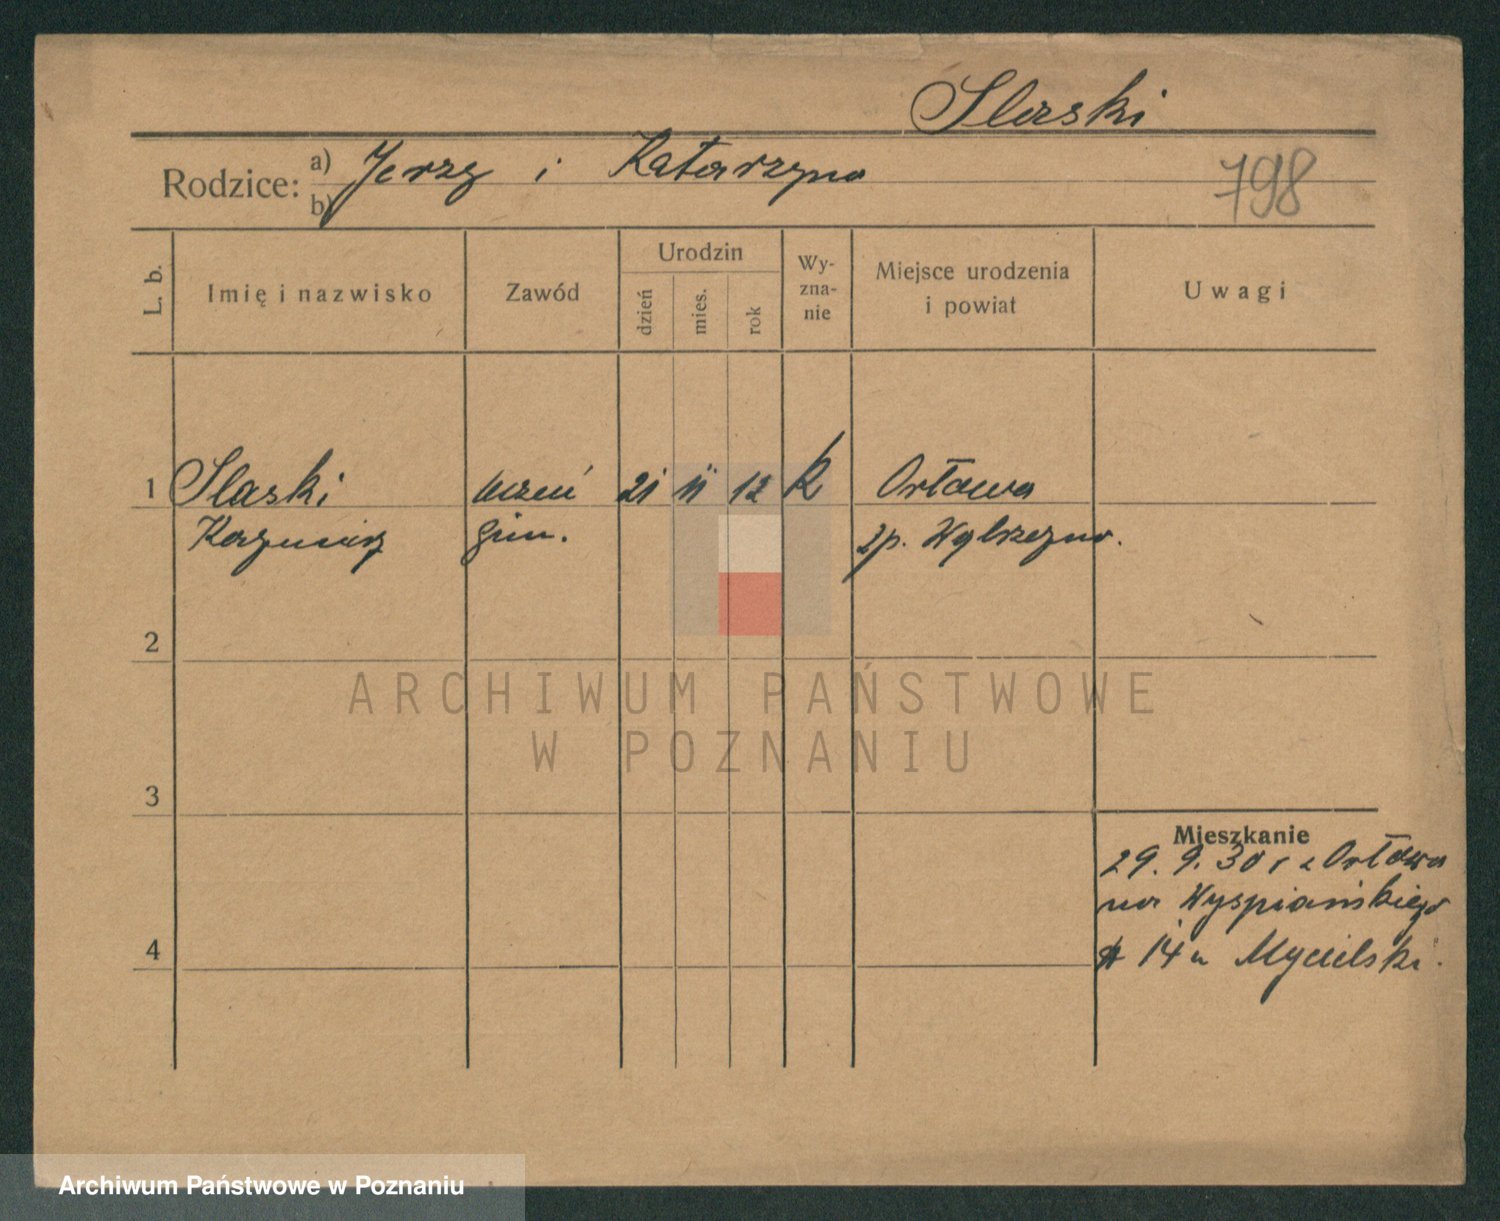 Slaski
Rodzice: a) Jerzy i Katarzyna
b)
798
L. b. Imię i nazwisko Zawód Urodzin dzień mies. rok Wy-zna-nie Miejsce urodzenia i powiat Uwagi
1 Slaski uczeń 21 11 12 k Orłowa
Kazimierz gim. Wąbrzeźno.
2
ARCHIWUM PAŃSTWOWE
W POZNANIU
3
Mieszkanie
29. 9. 30 r z Orłowa
na Wyspiańskiego
14 u Mycielski.
4
Archiwum Państwowe w Poznaniu